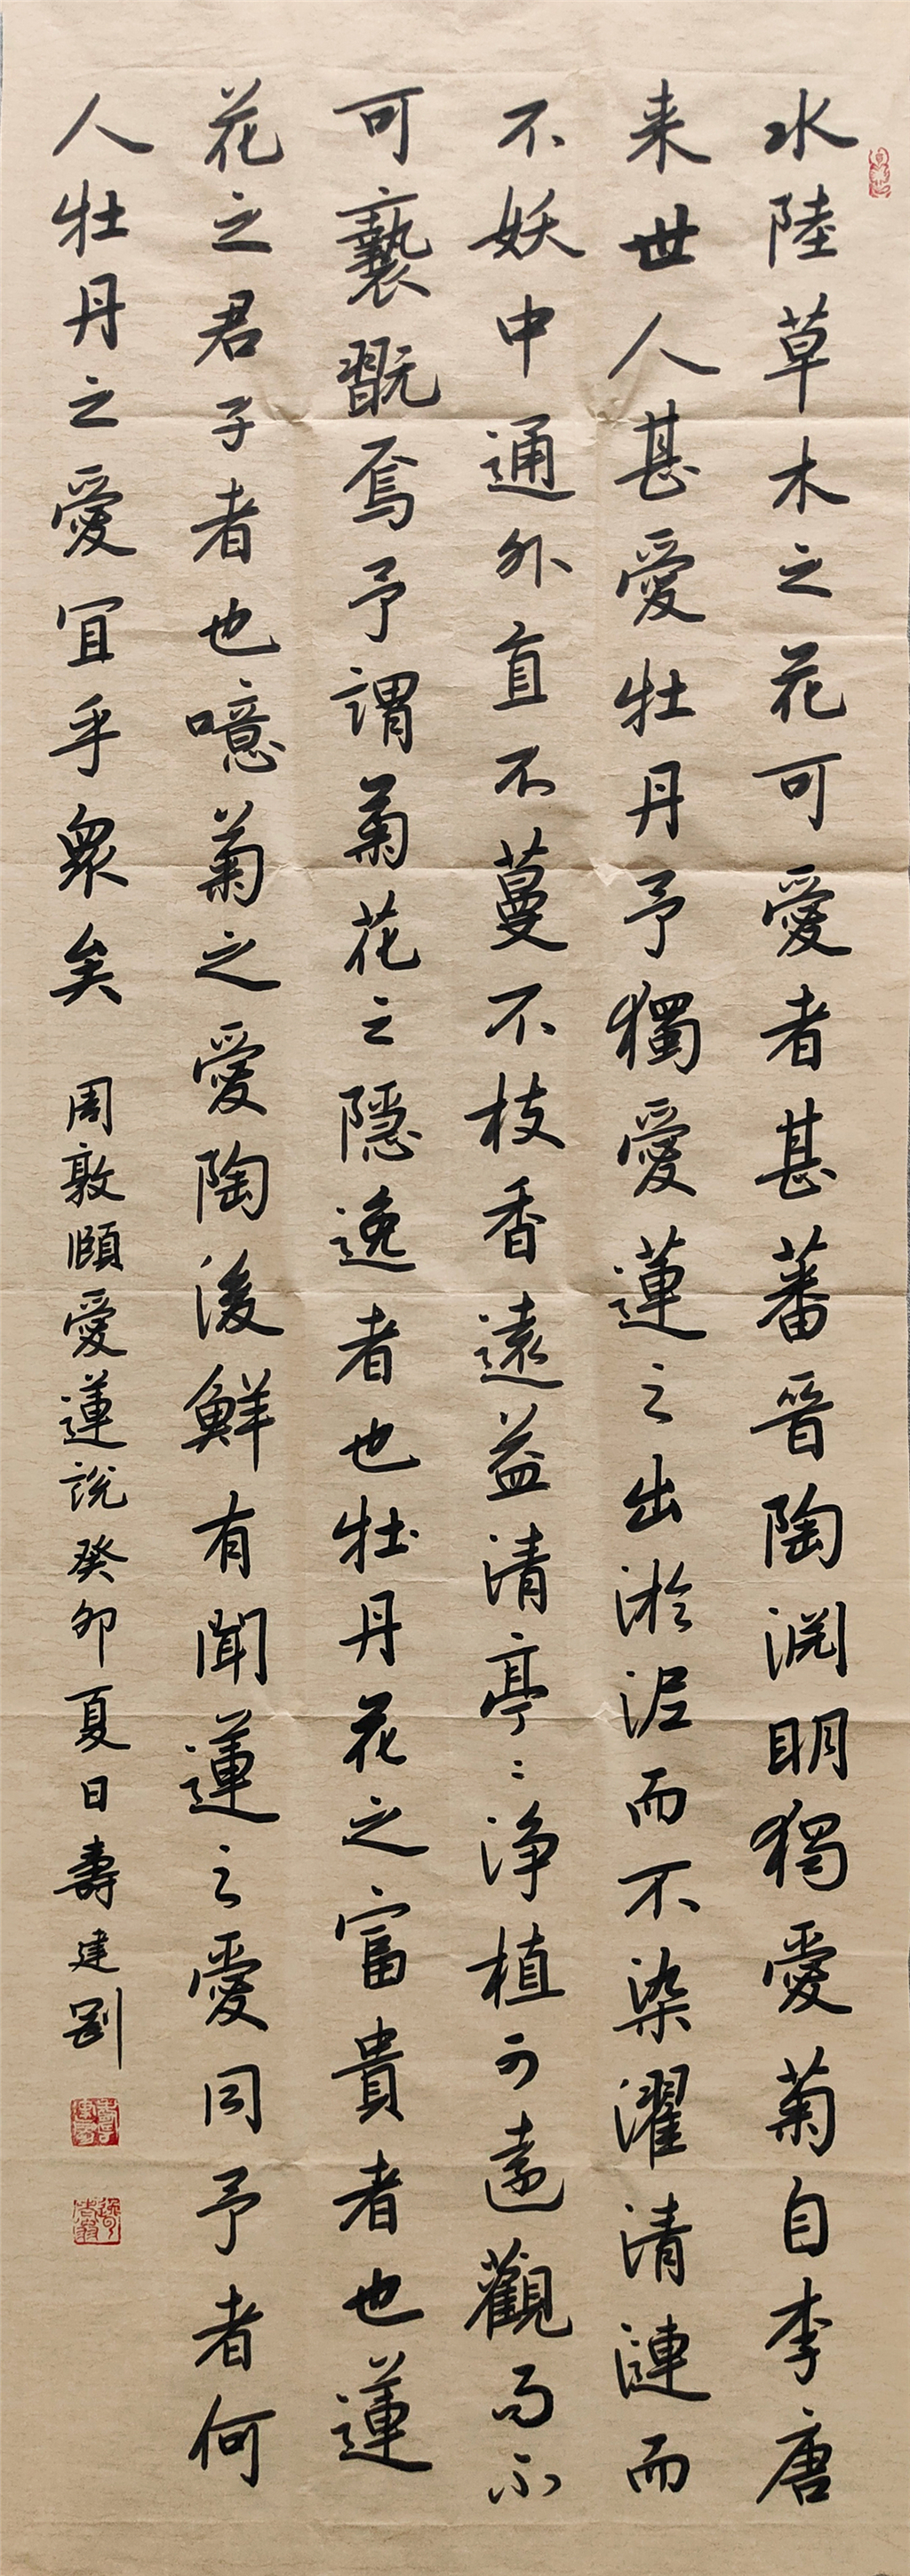 水陸草木之花可愛者甚蕃晉陶淵明獨愛菊自李唐
来世人甚愛牡丹予獨愛蓮之出淤泥而不染濯清漣而
不妖中通外直不蔓不枝香遠益清亭〻淨植可遠觀而不
可褻翫焉予謂菊花之隱逸者也牡丹花之富貴者也蓮
花之君子者也噫菊之愛陶後鮮有聞蓮之愛同予者何
人牡丹之愛宜乎衆矣 周敦頤愛蓮說癸卯夏日壽建剛